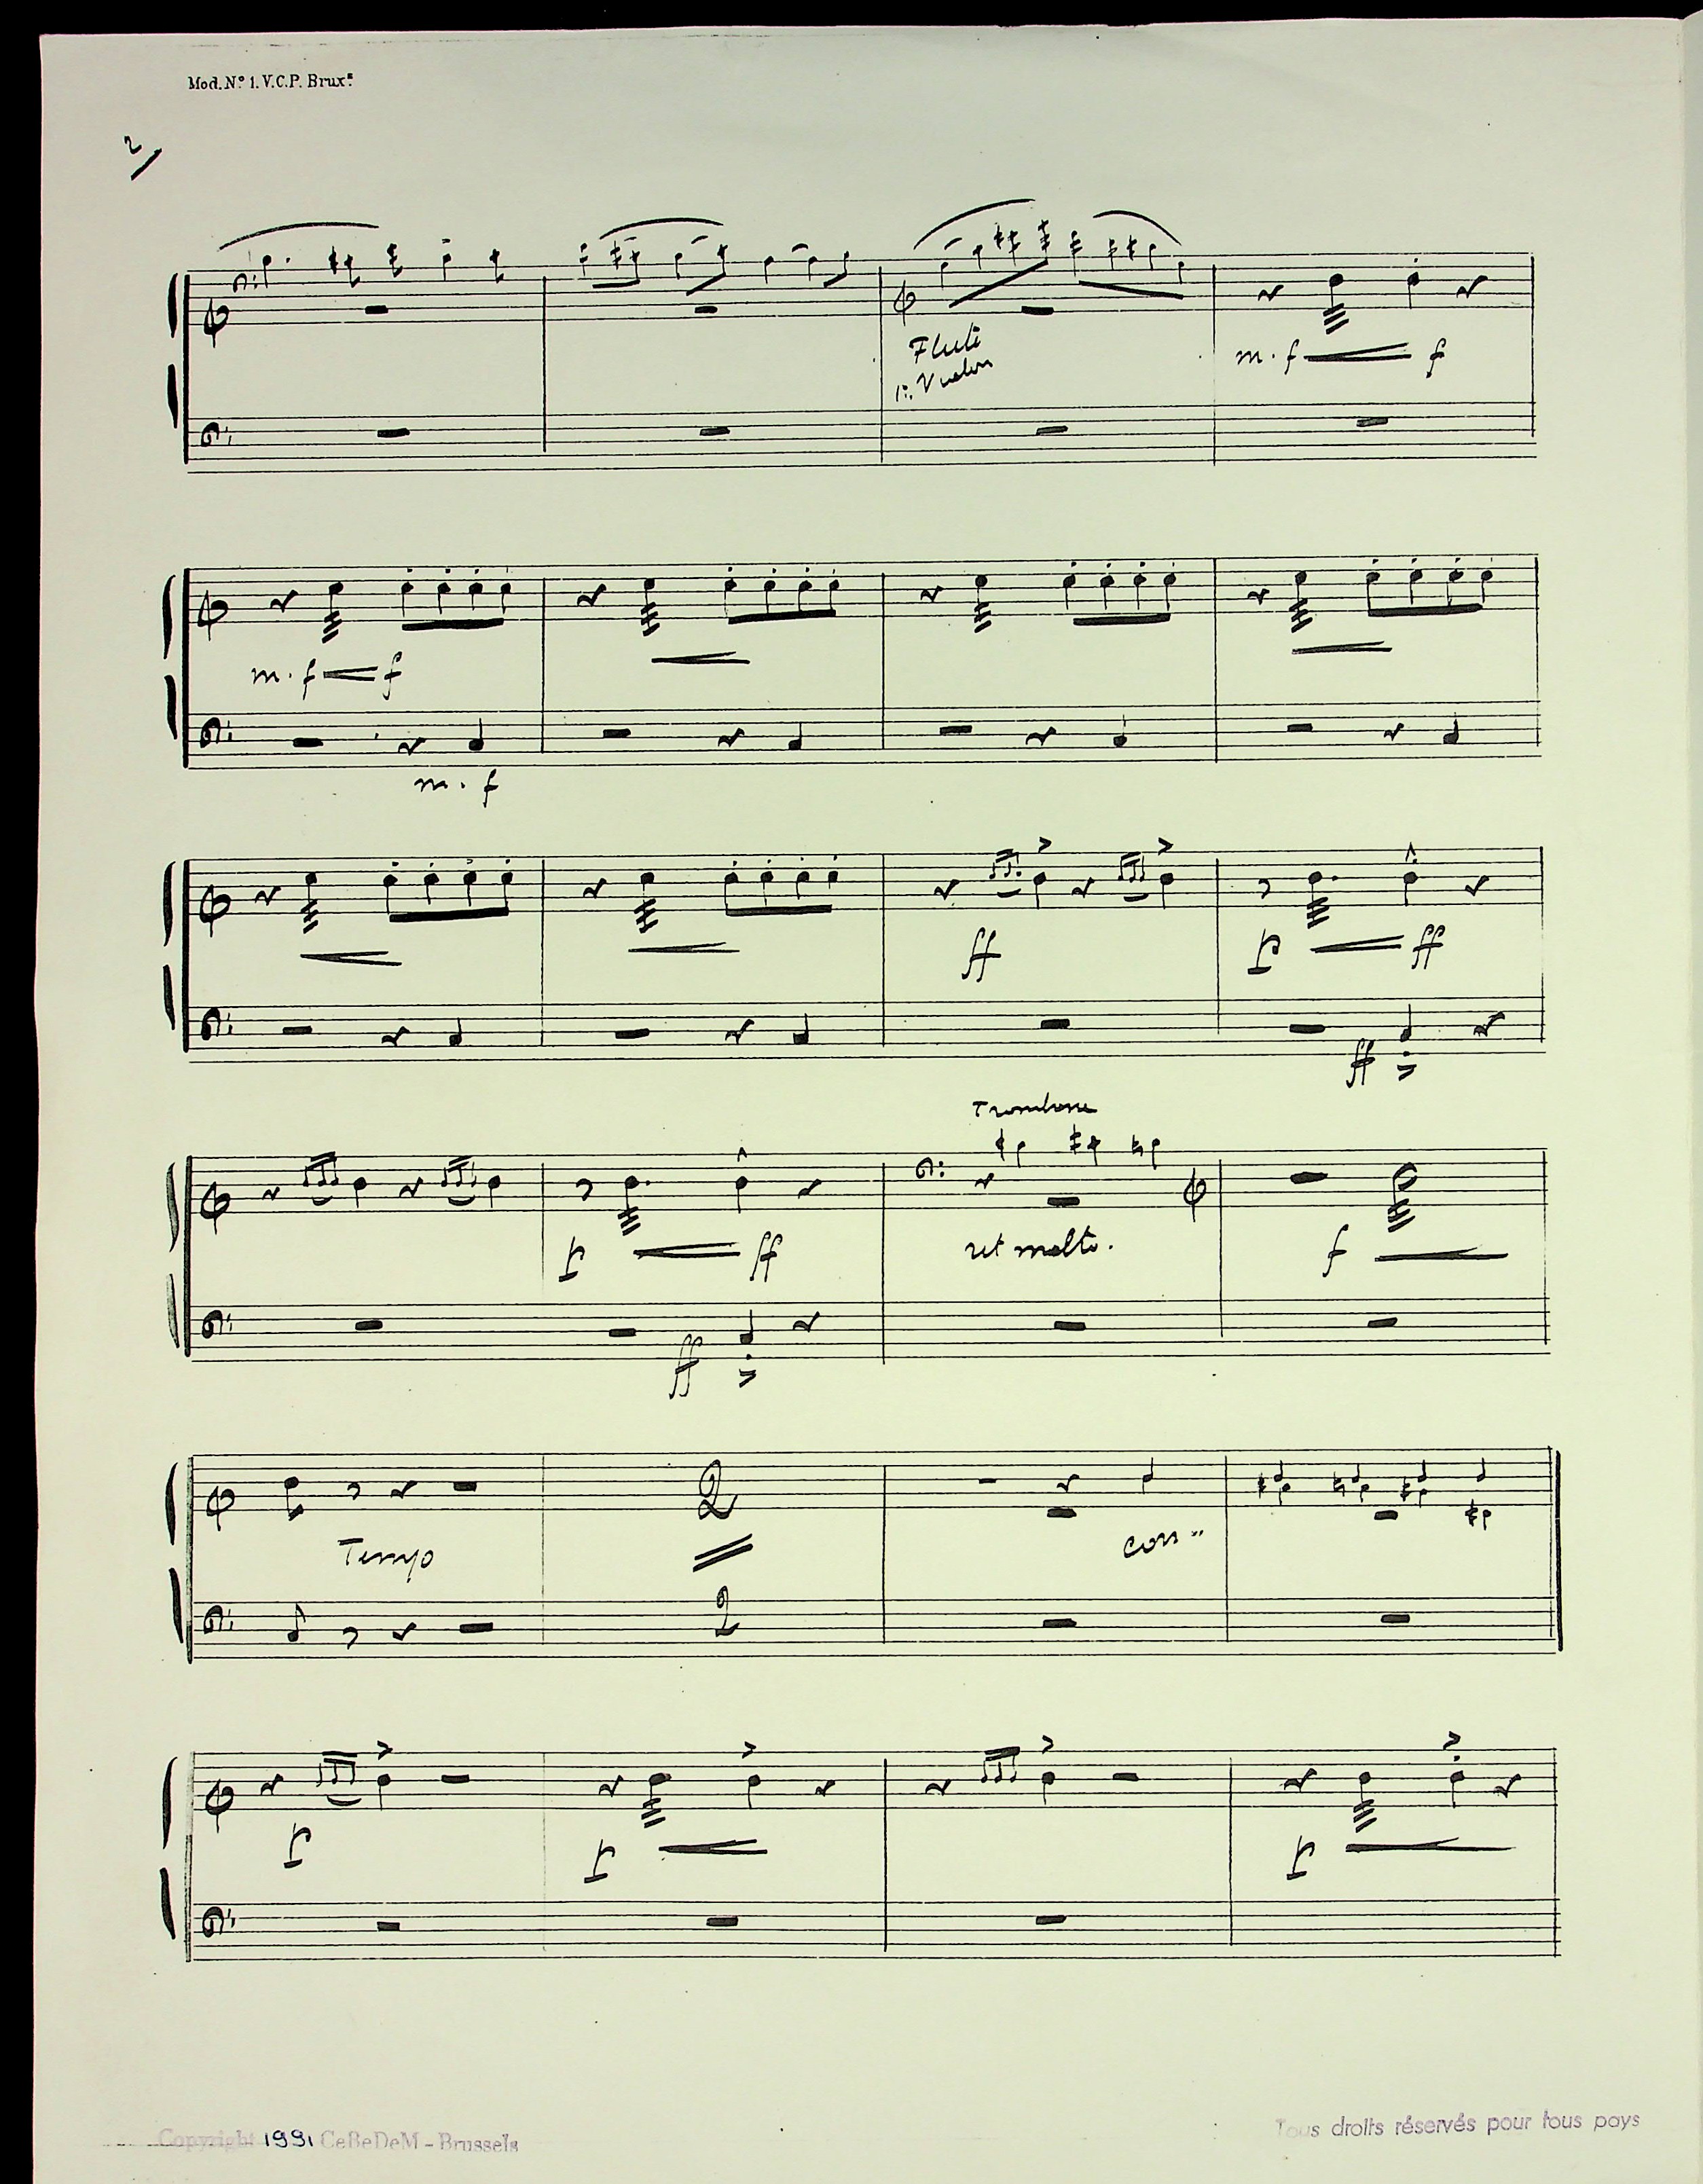 Mod. N° 1. V.C.P. Brux.
2/
Flute
1: Violon
m.f f
m.f f
m.f
ff p ff
ff
Trombone
p ff rit molto. f
ff
2
Tempo
con
2
p p p
Copyright 1991 CeBeDeM - Brussels
Tous droits réservés pour tous pays